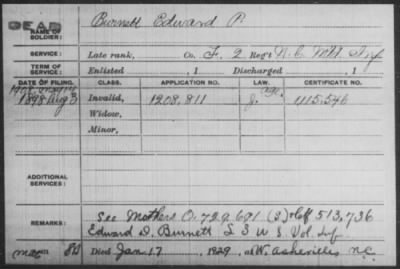 DEAD
NAME OF SOLDIER: Burnett Edward P.
SERVICE: Late rank, Co. F, 2 Reg't N.C. Mtd. Inf
TERM OF SERVICE: Enlisted , 1 Discharged , 1
DATE OF FILING. CLASS. APPLICATION NO. LAW. CERTIFICATE NO.
1898 Aug 3 Invalid, 1208,811 1,115,546
Widow,
Minor,
ADDITIONAL SERVICES:
REMARKS: See Mothers O. 729,691 (3) Ctf 513,736
Edward D. Burnett U S Vol. Inf.
Died Jan 17, 1929, at W. Asheville, N.C.